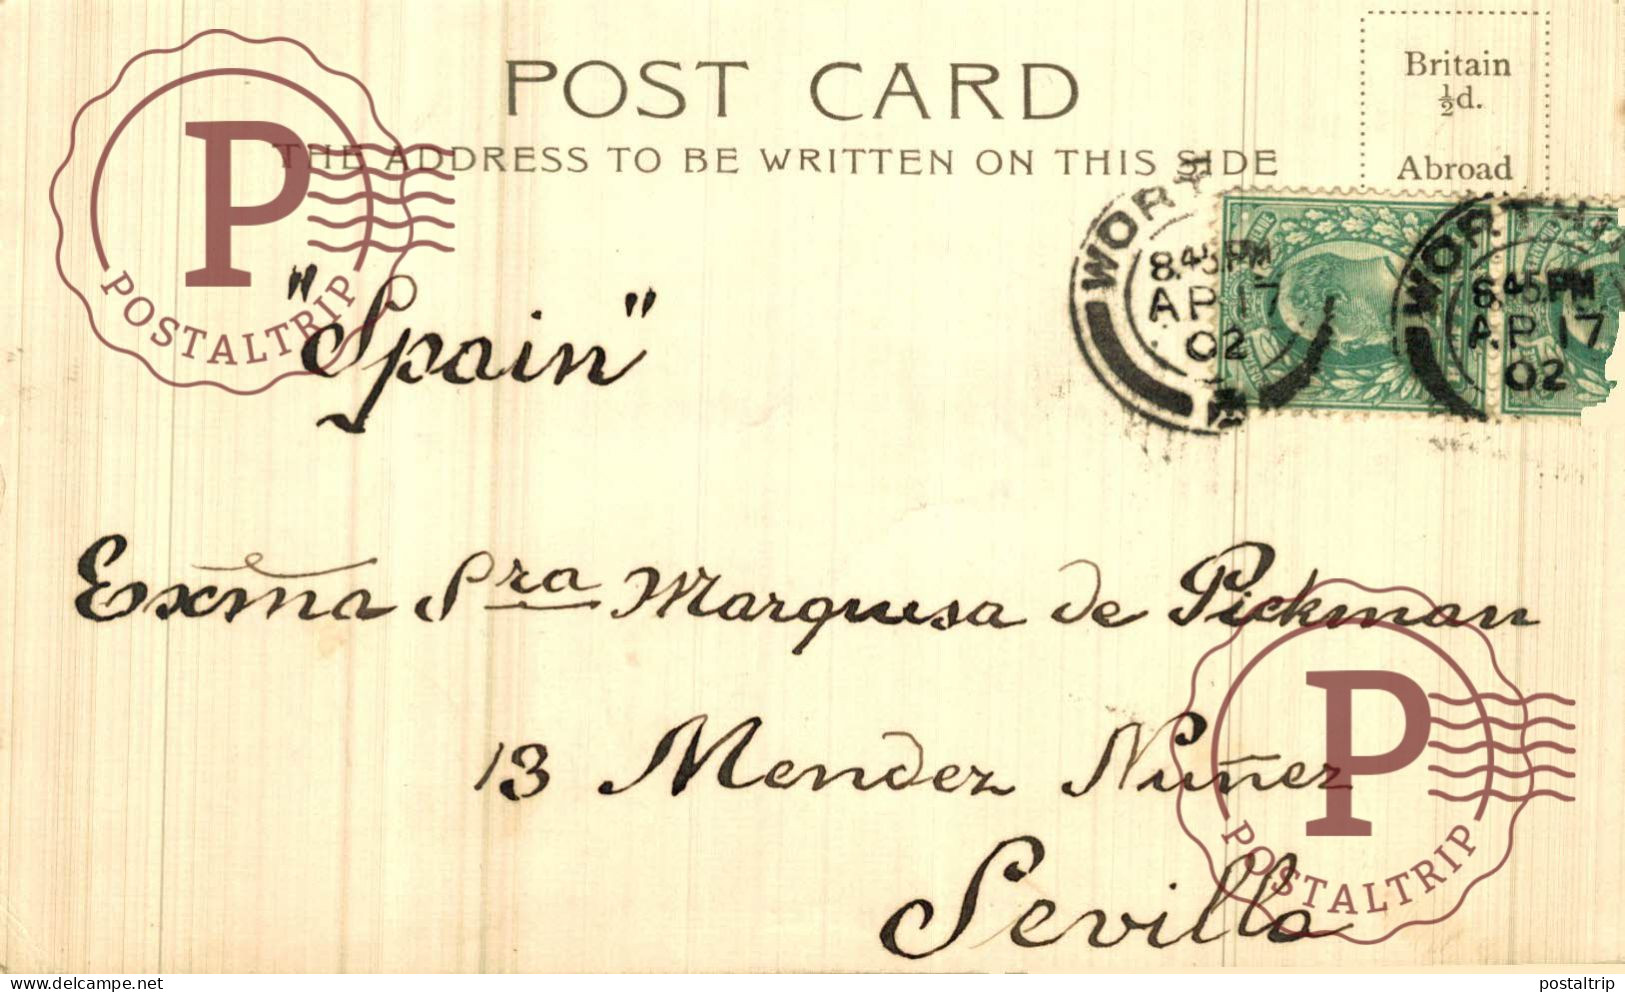 POST CARD
THE ADDRESS TO BE WRITTEN ON THIS SIDE
Britain
½d.
Abroad
WORTHING
8.45 PM
AP 17
02
WORTHING
8.45 PM
AP 17
02
"Spain"
Exma Sra Marquesa de Pickman
13 Mendez Nuñez
Sevilla
P
POSTALTRIP
P
POSTALTRIP
Delcampe.net
postaltrip